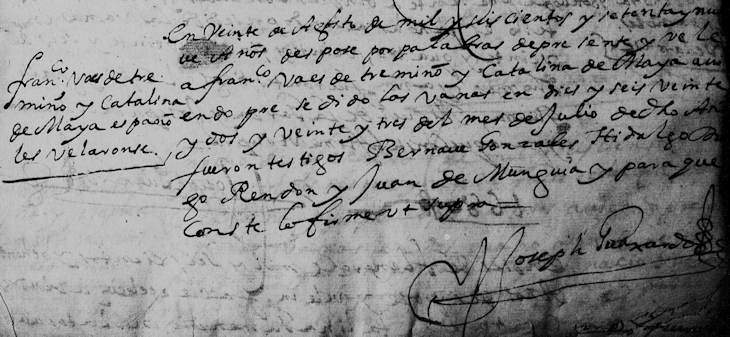 franco. Vaes de tre
miño y Catalina
de Maya españo
les Velaronse.
En Veinte de Agsto de mil y seis cientos y setenta y nue
ve Años despose por palabras de presente y Vele
a franco. Vaes de tremiño y Catalina de Maya avi
endo presedido las Vanas en dies y seis veinte
y dos y veinte y tres del mes de Julio de dho Año
fueron testigos Bernave Gonzales Hidalgo Di
ego Rendon y Juan de Munguia y para que
Conste lo firme ut supra
Joseph